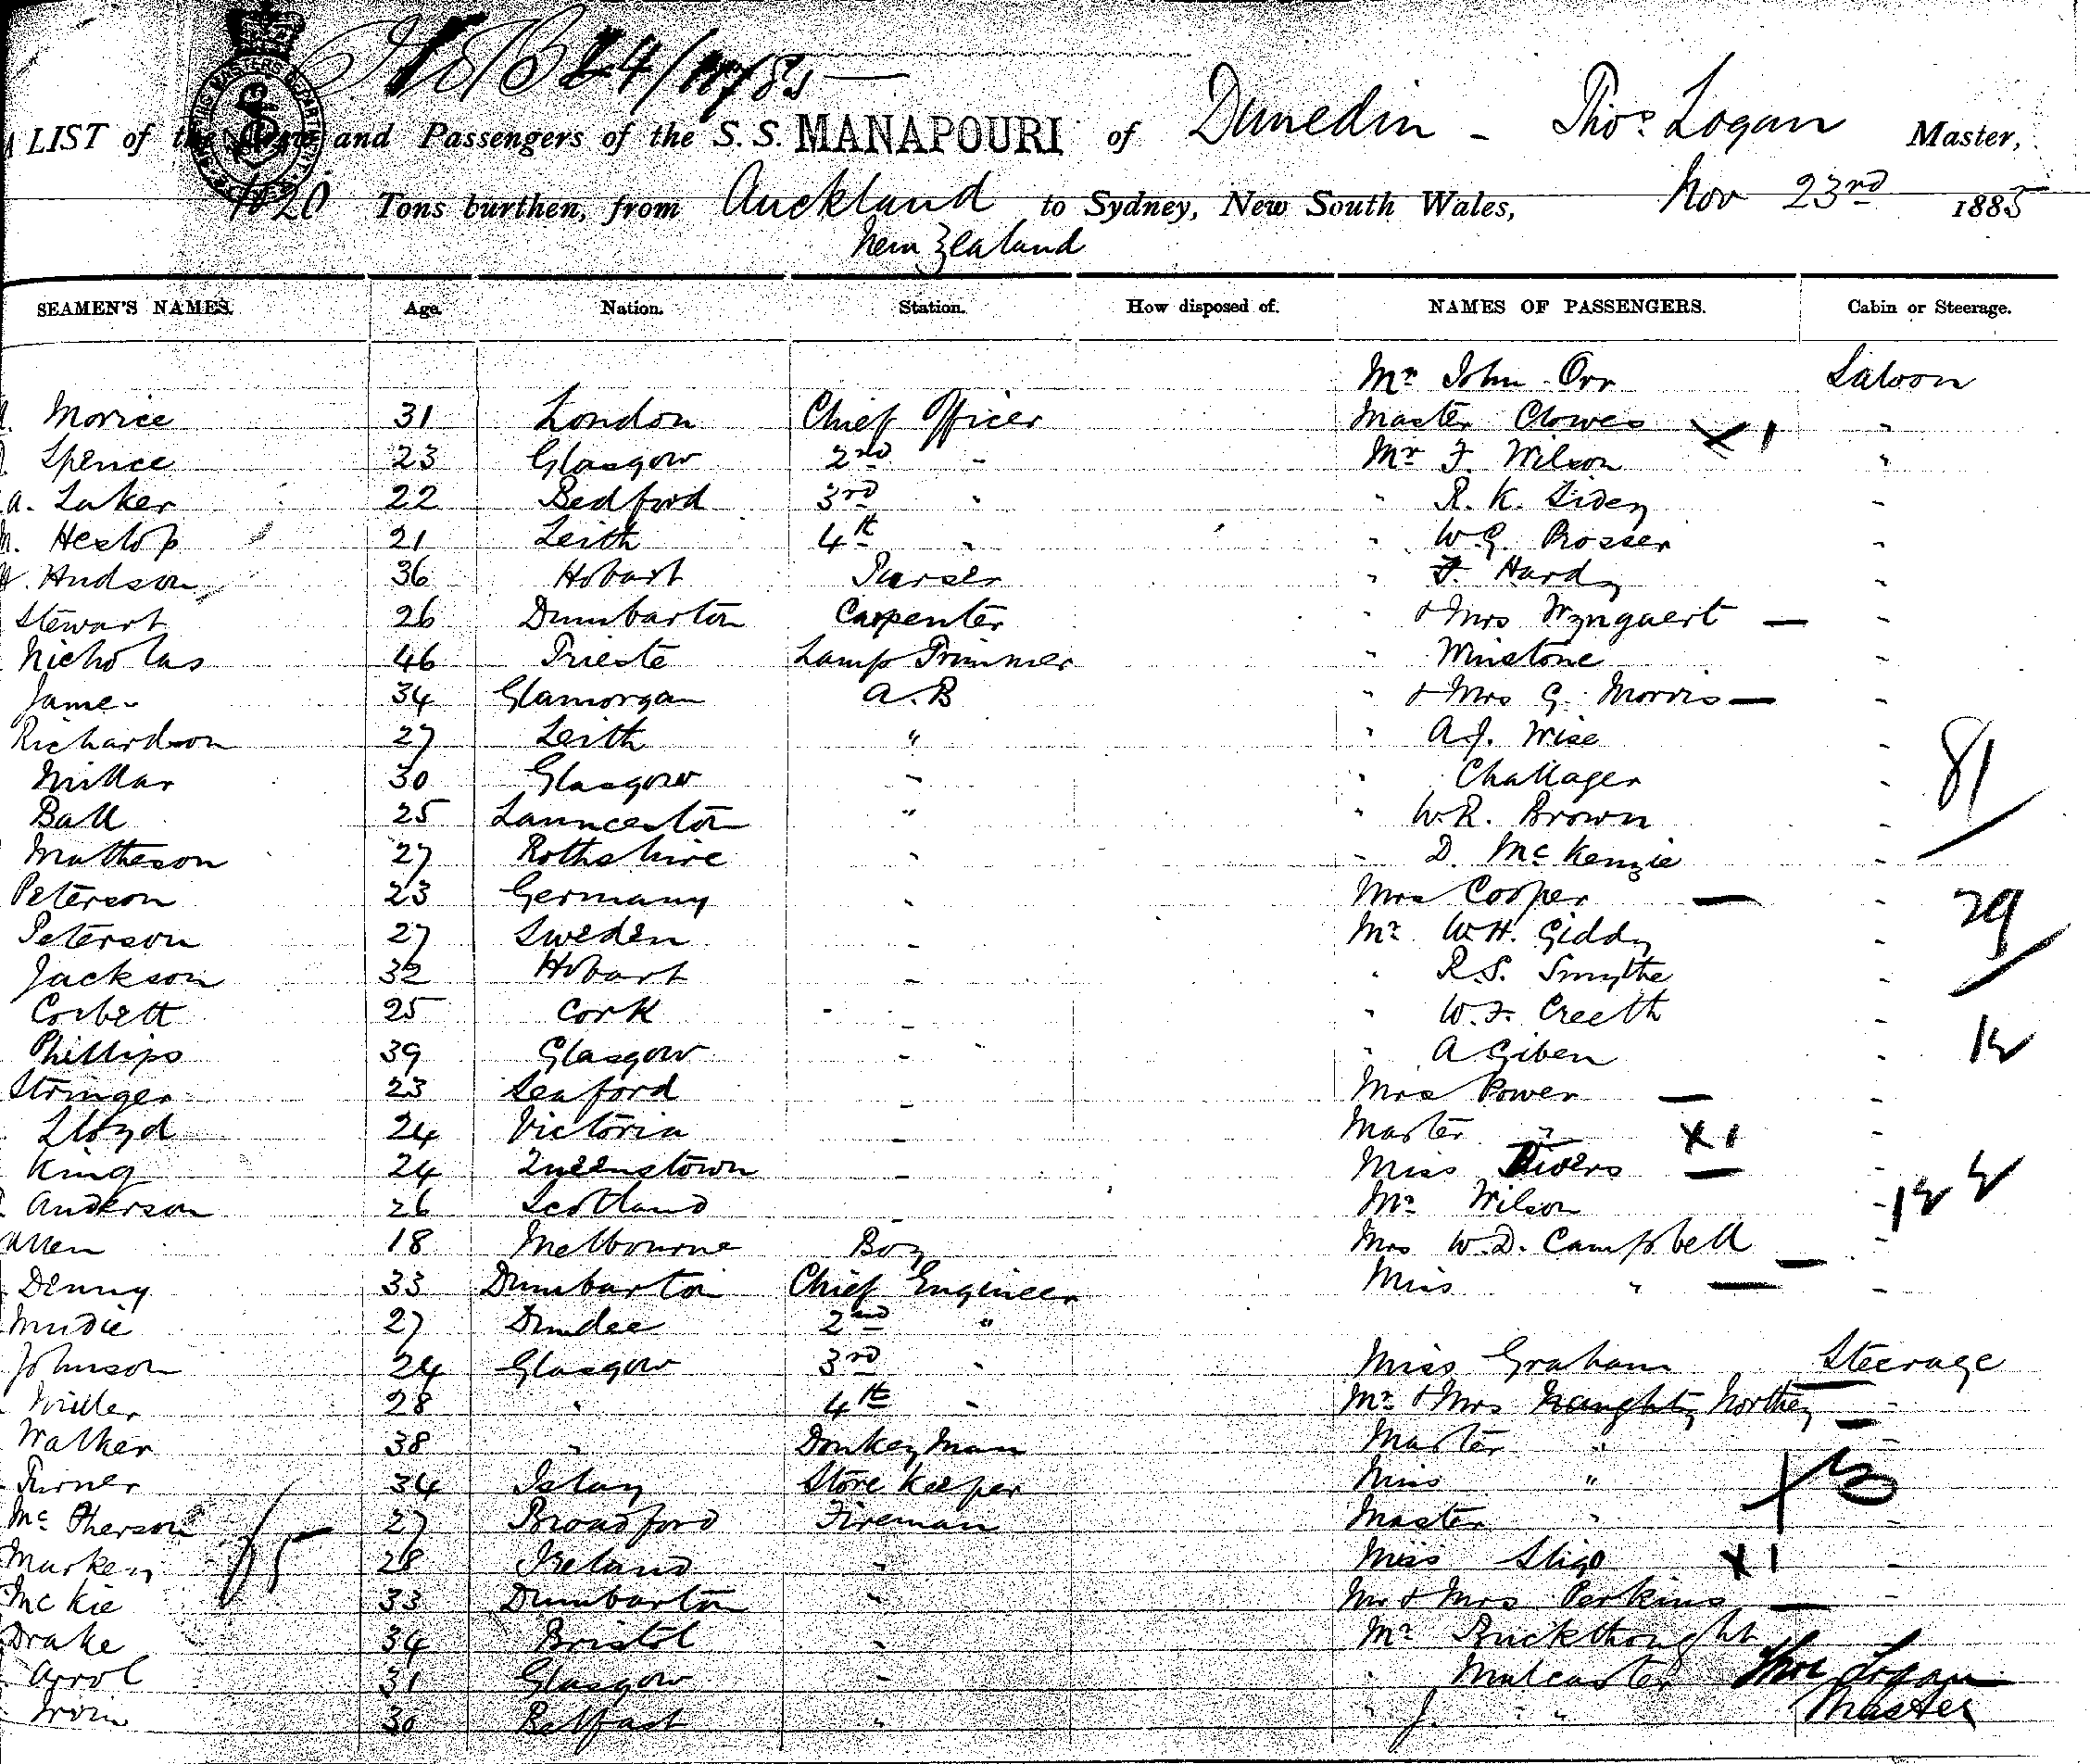 LIST of the Crew and Passengers of the S.S. MANAPOURI of Dunedin - Thos Logan Master,
1020 Tons burthen, from Auckland to Sydney, New South Wales, Nov 23rd 1885
New Zealand
SEAMEN'S NAMES. Age. Nation. Station. How disposed of. NAMES OF PASSENGERS. Cabin or Steerage.
Mr John Orr Saloon
Morice 31 London Chief Officer Master Clowes X 1 "
Spence 23 Glasgow 2nd " Mr F. Wilson "
A. Laker 22 Bedford 3rd " " R. K. "
Heslop 21 Leith 4th " " W.G. Prosser "
H. Hudson 36 Hobart Purser " F. Hardy "
Stewart 26 Dumbarton Carpenter " & Mrs Wynguert — "
Nicholas 46 Trieste Lamp Trimmer " Winstone "
James 34 Glamorgan A.B " & Mrs G. Morris — "
Richardson 27 Leith " " A.J. Wise "
Millar 30 Glasgow " " Challager " 81
Ball 25 Launceston " " W.R. Brown "
Matheson 27 Rothshire " " D. McKenzie "
Peterson 23 Germany " Mrs Cooper — "
Peterson 27 Sweden " Mr W.H. Giddy " 29
Jackson 32 Hobart " " R.S. Smythe "
Corbett 25 Cork " " W.F. Creeth "
Phillips 39 Glasgow " " A Giben "
Stringer 23 Seaford " Mrs Power — "
Lloyd 24 Victoria " Master " X 1 "
King 24 Queenstown " Miss Divers — "
Anderson 26 Scotland " Mr Wilson "
Allen 18 Melbourne Boy Mrs W.D. Campbell — "
Denny 33 Dumbarton Chief Engineer Miss " — "
Mudie 27 Dundee 2nd "
Johnson 24 Glasgow 3rd " Miss Graham Steerage
Miller 28 " 4th " Mr & Mrs Naughty Northey — "
Walker 38 " Donkey Man Master " "
Turner 34 Islay Store Keeper Miss " X 3
McPherson 27 Broadford Fireman Master " "
28 Ireland " Miss Sligo X 1 "
McKie 33 Dumbarton " Mr & Mrs Perkins — "
Drake 34 Bristol " Mr Buckthought
Arrol 31 Glasgow " " Mulcaster Thos Logan
Irvin 30 Belfast " " J. " Master